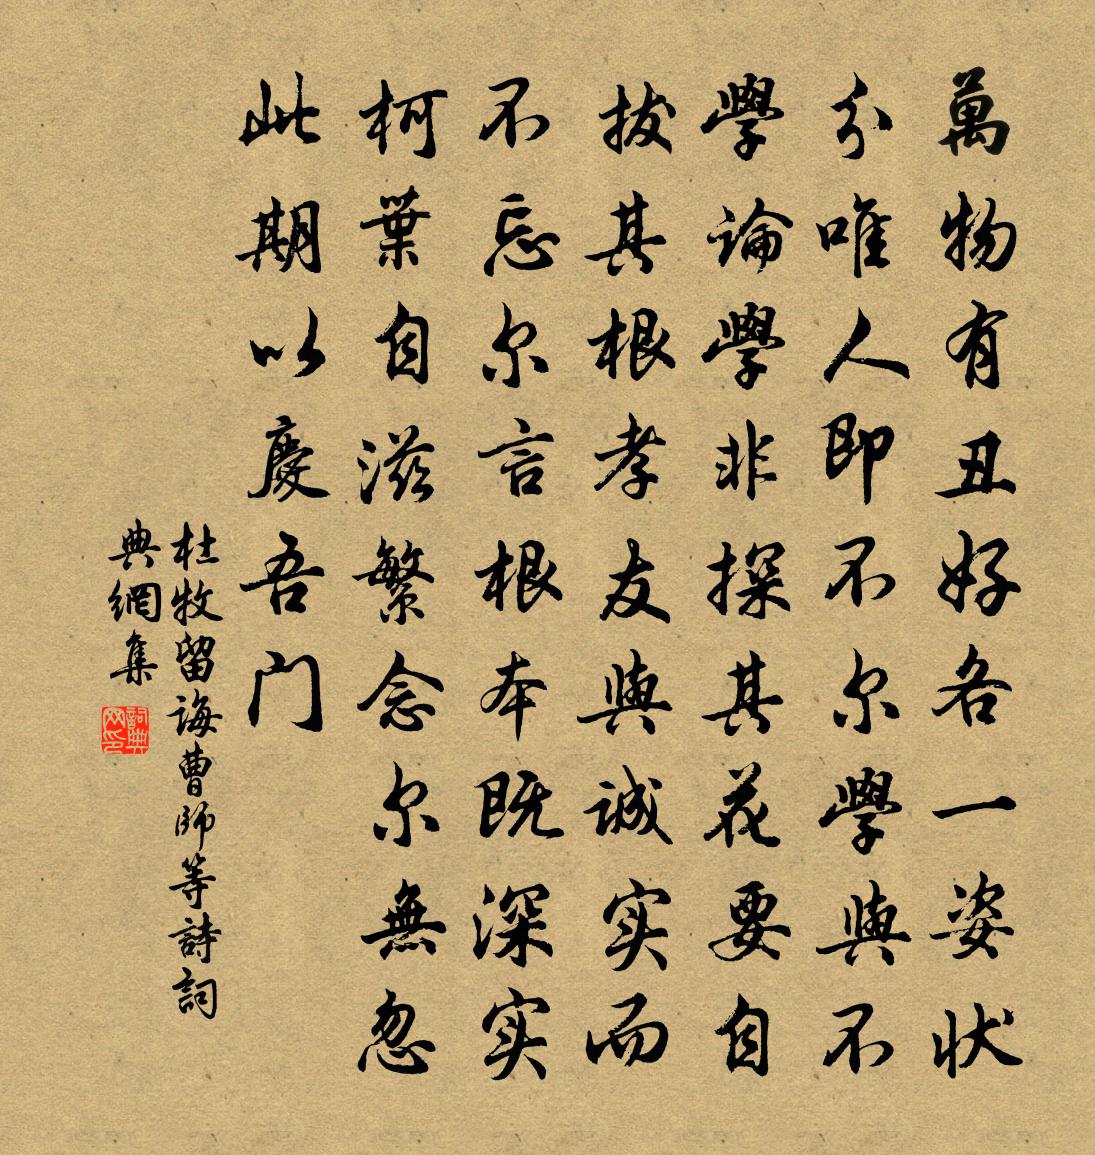 萬物有丑好各一姿状
分唯人即不尔學與不
學論學非探其花要自
拔其根孝友與誠实而
不忘尔言根本既深实
柯葉自滋繁念尔無忽
此期以慶吾门
杜牧留誨曹師等詩詞
典網集
詞典
网印